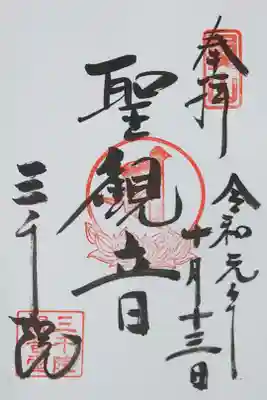 奉拝
令和元年
十月十三日
聖観音
三千院